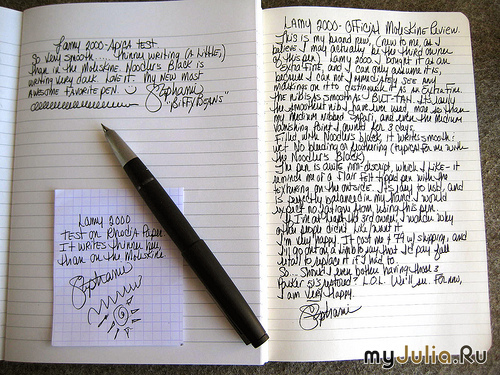 Lamy 2000 - Apica test
So very smooth .... thinner writing (a little,)
than in the Moleskine. Noodler's Black is
writing very dark. Love it. My new most
awesome favorite pen.
Stephanie
"Biffybeans"
Lamy 2000
test on Rhodia Paper
It writes thinner here,
than on the Moleskine.
Stephanie
Lamy 2000 - Official Moleskine Review.
This is my brand new, (new to me, as I
believe I may actually be the third owner
of this pen) Lamy 2000. I bought it as an
"extra fine", and I can only assume it is,
because I can not immediately see any
markings on it to distinguish it as an extra fine.
the nib is as smooth as BUT-TAH. It's easily
the smoothest nib I have ever used, more so than
my medium nibbed Safari, and even the medium
Vanishing Point I owned for 3 days.
Filled with Noodler's black, it writes smooth &
wet. No bleeding or feathering (typical for me with
the Noodler's Black)
The pen is quite non-descript, which I like - it
reminds me of a Flair felt tipped pen with the
texturing on the outside. It's easy to hold, and
is perfectly balanced in my hand. I would
expect no fatigue from using this pen.
If I'm at least the 3rd owner, I wonder why
other people didn't like/want it.
I'm very happy. It cost me $79 w/ shipping, and
I'll go out on a limb to say that I'd pay full
retail to replace it if I had to.
So... should I even bother having those 3
Parker 51's restored? L.O.L. We'll see. For now,
I am very happy.
Stephanie
myJulia.Ru